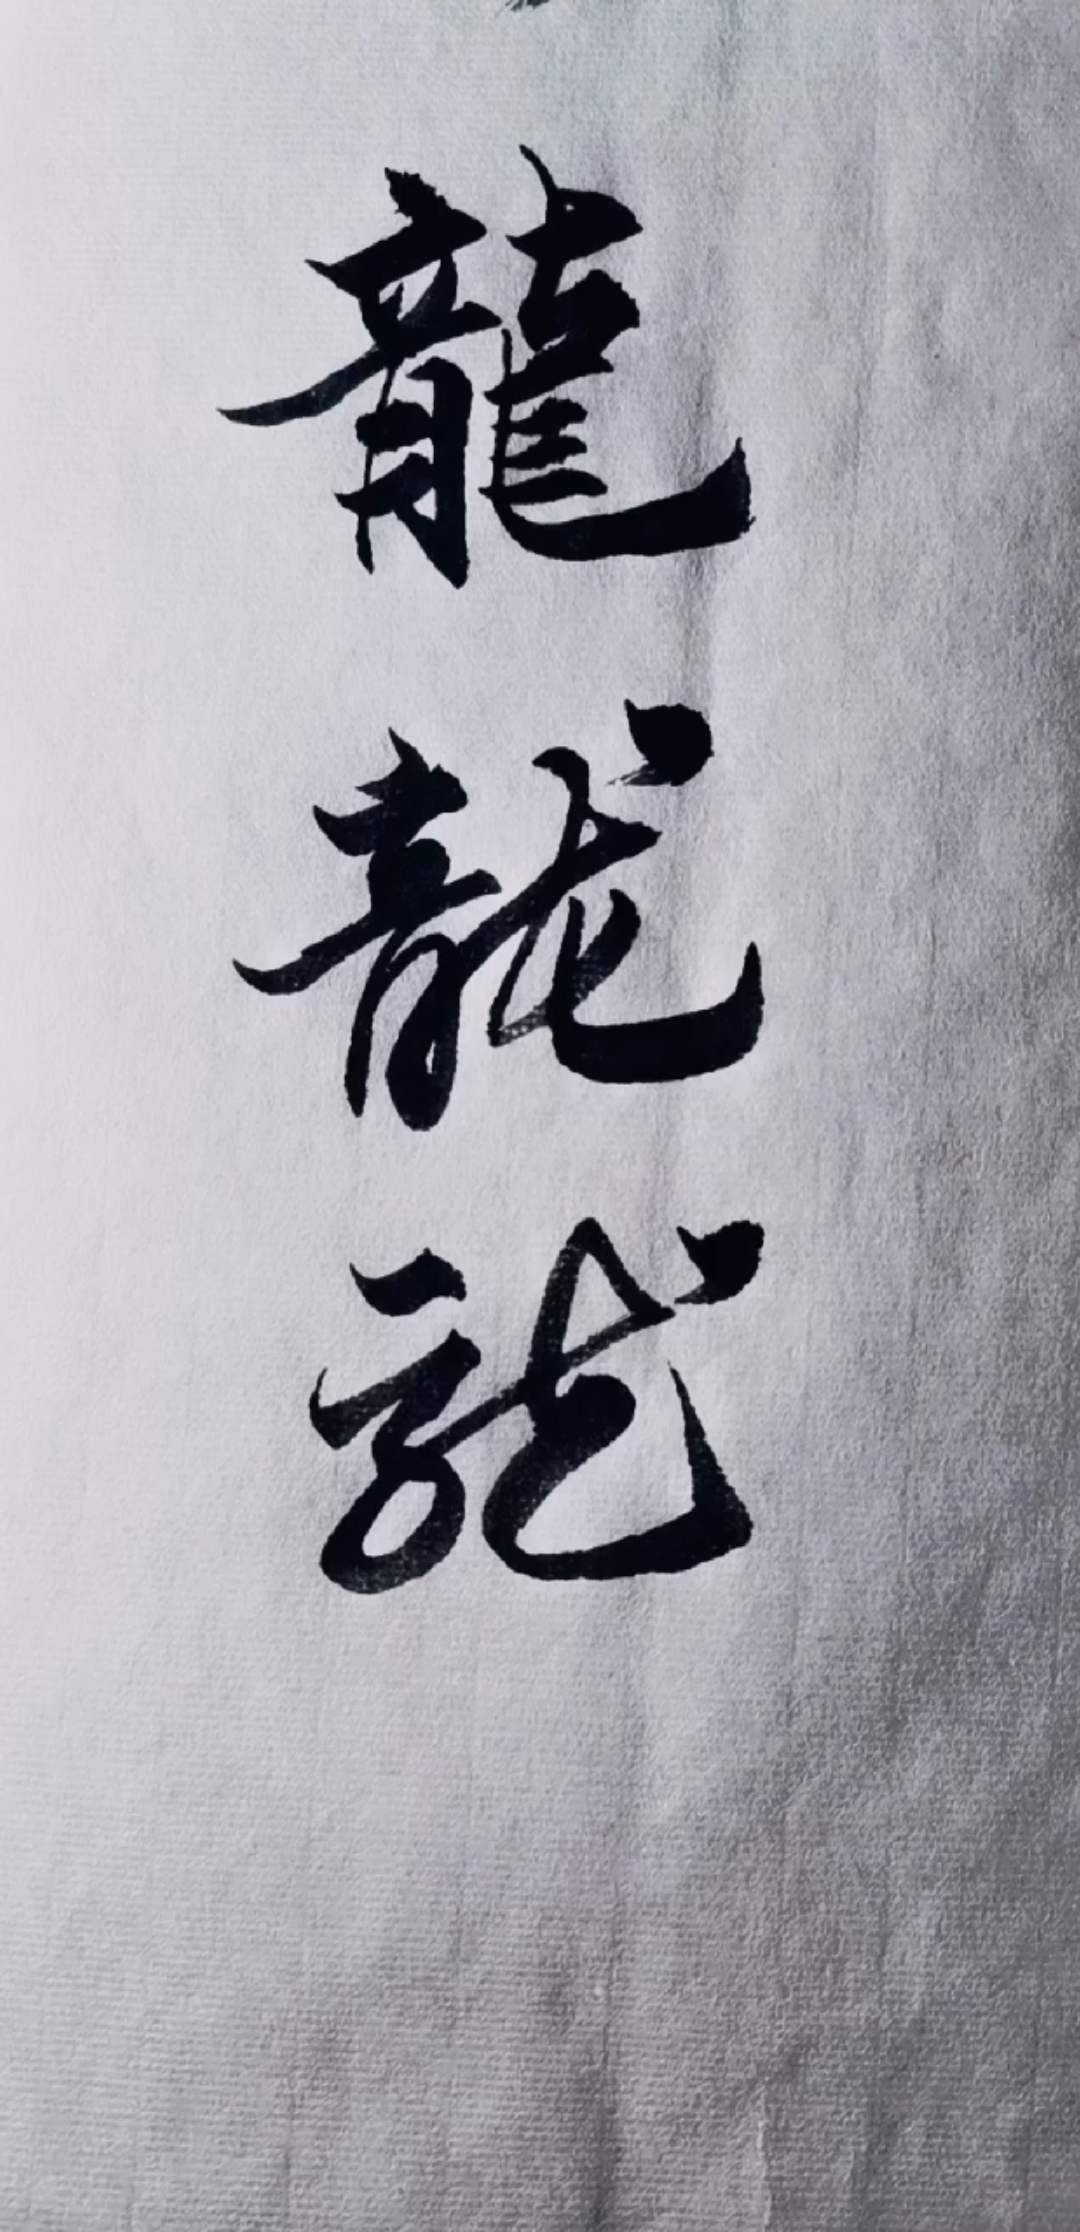 龍
龍
龍